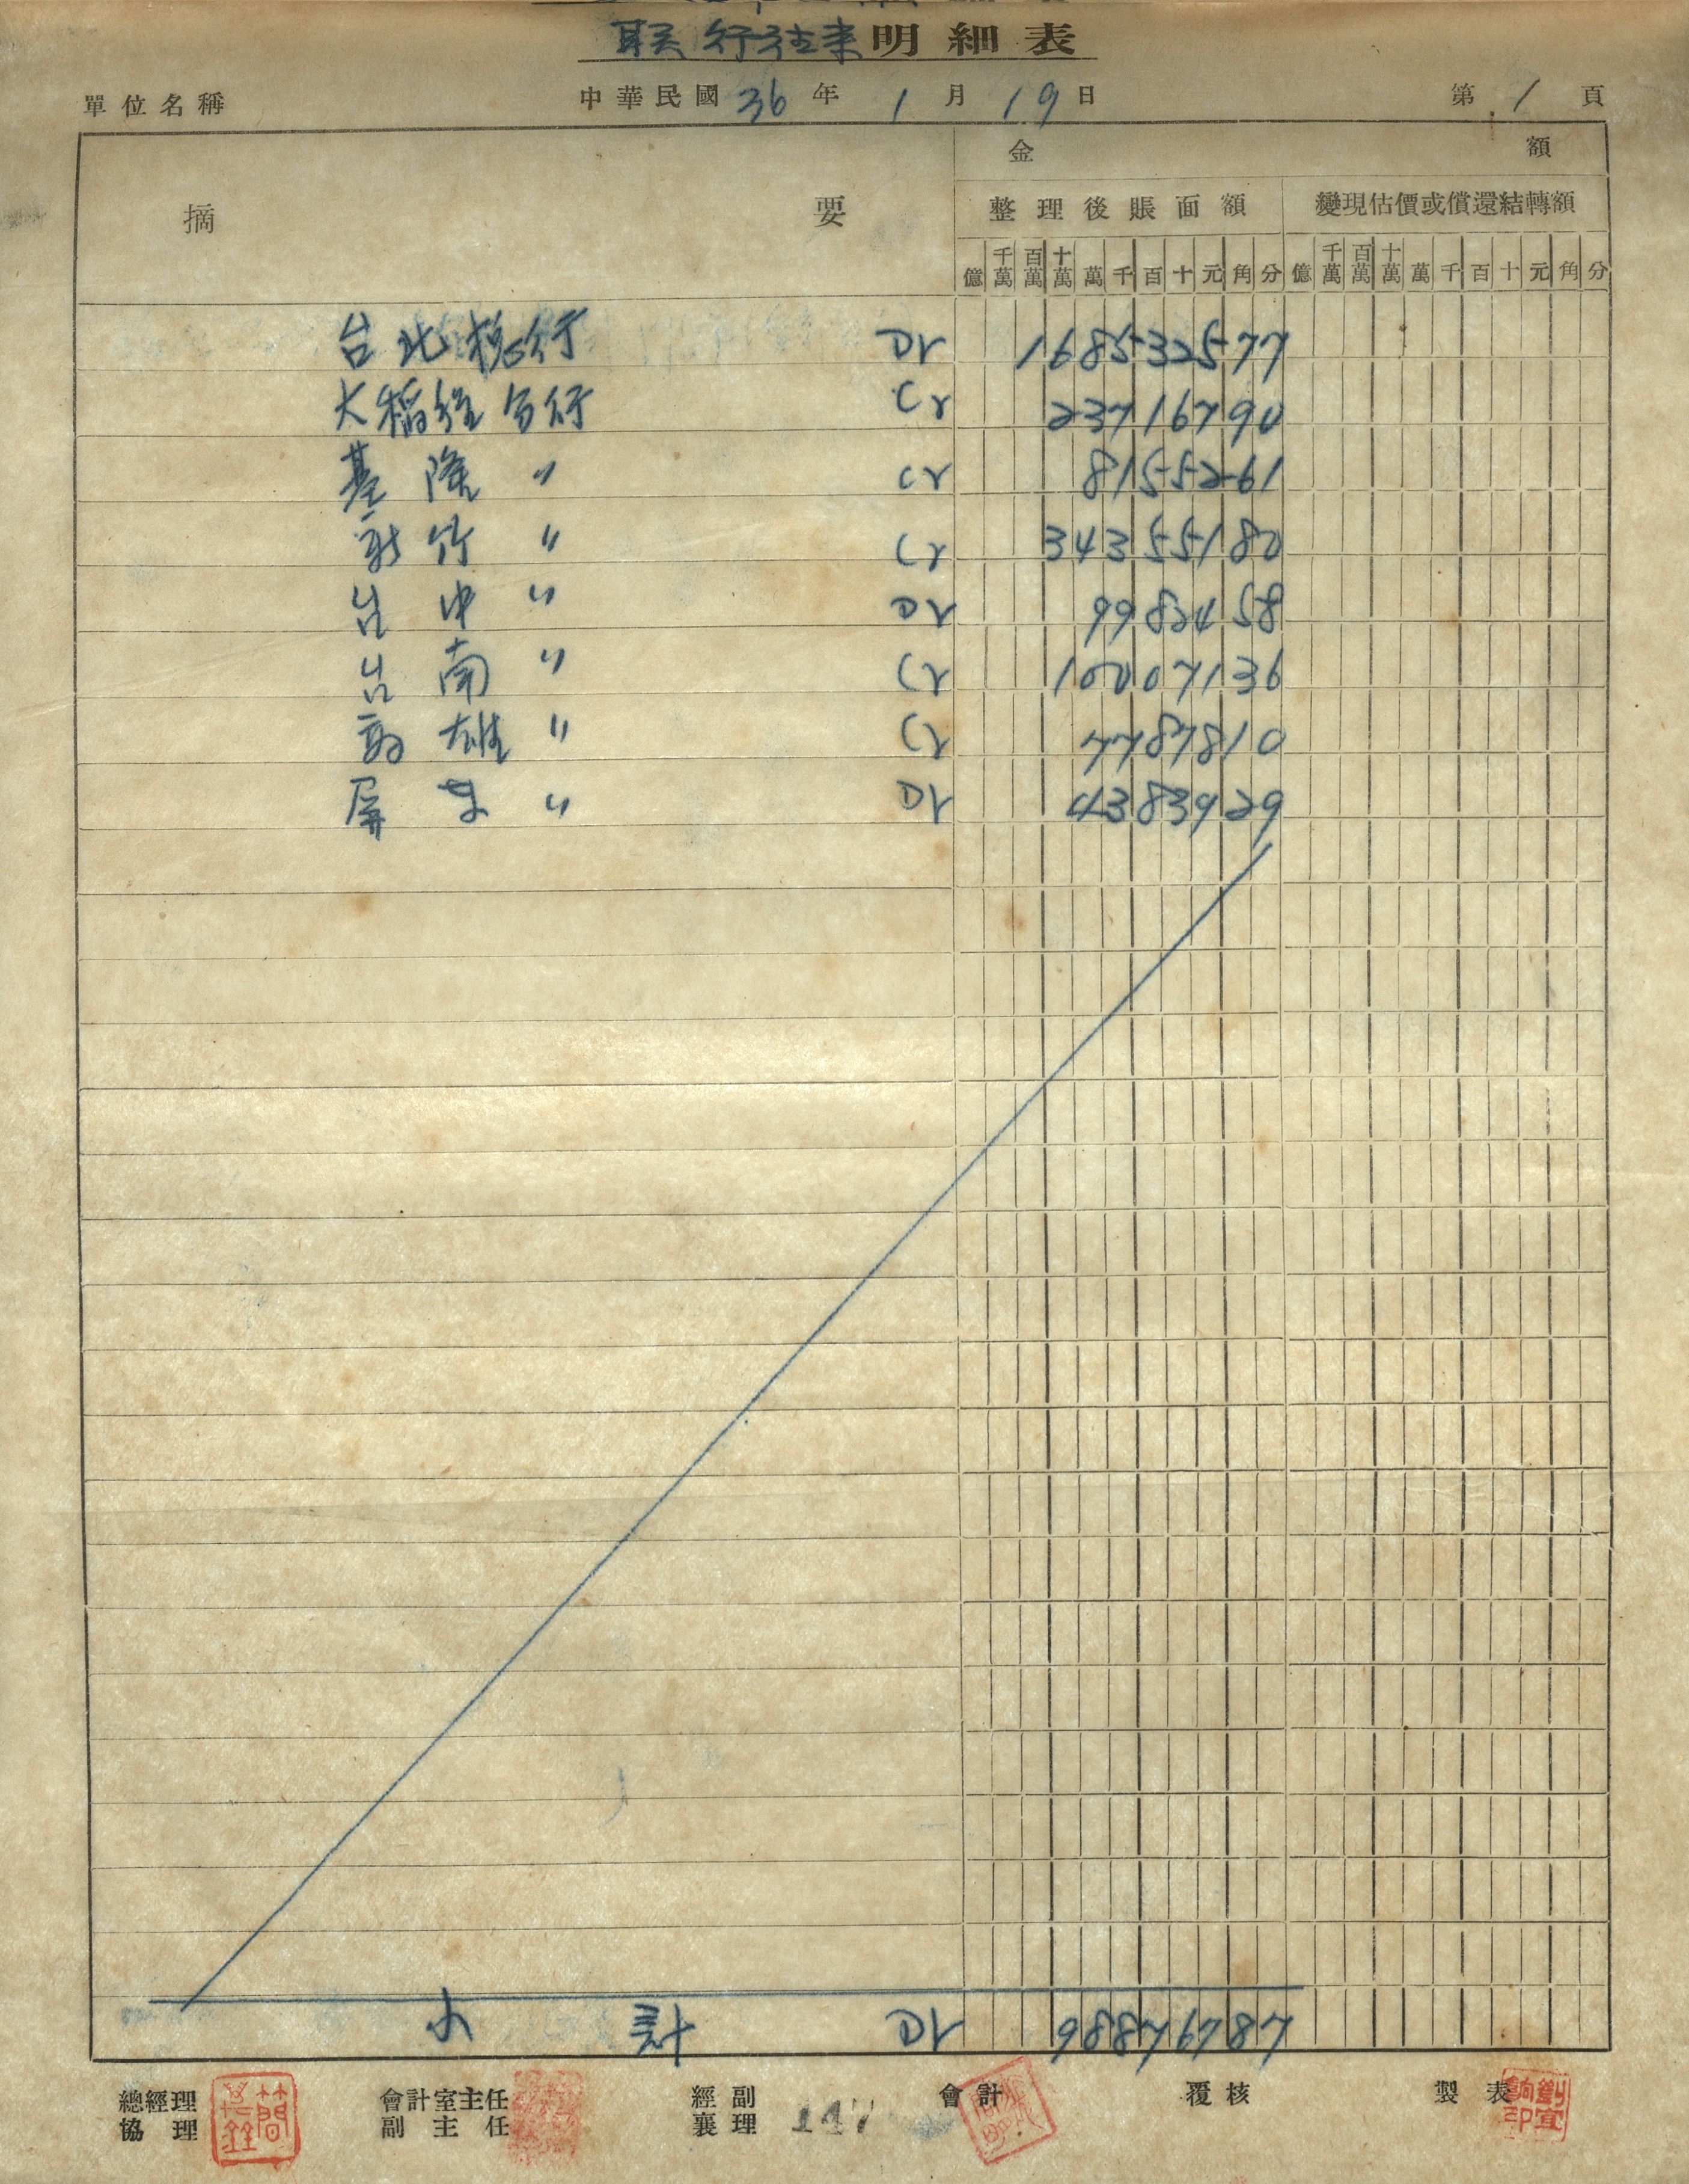 联行往来明細表
單位名稱 中華民國36年1月19日 第1頁
金額
摘要 整理後賬面額 變現估價或償還結轉額
億 千萬 百萬 十萬 萬 千 百 十 元 角 分 億 千萬 百萬 十萬 萬 千 百 十 元 角 分
台北總行 Dr 168532577
大稻埕分行 Cr 23716790
基隆 〃 Cr 8155261
新竹 〃 Cr 34355180
台中 〃 Dr 9982458
台南 〃 Cr 10007136
高雄 〃 Cr 7787810
屏東 〃 Dr 4383929
小計 Dr 98876787
總經理 會計室主任 經副 會計 覆核 製表
協理 副主任 襄理